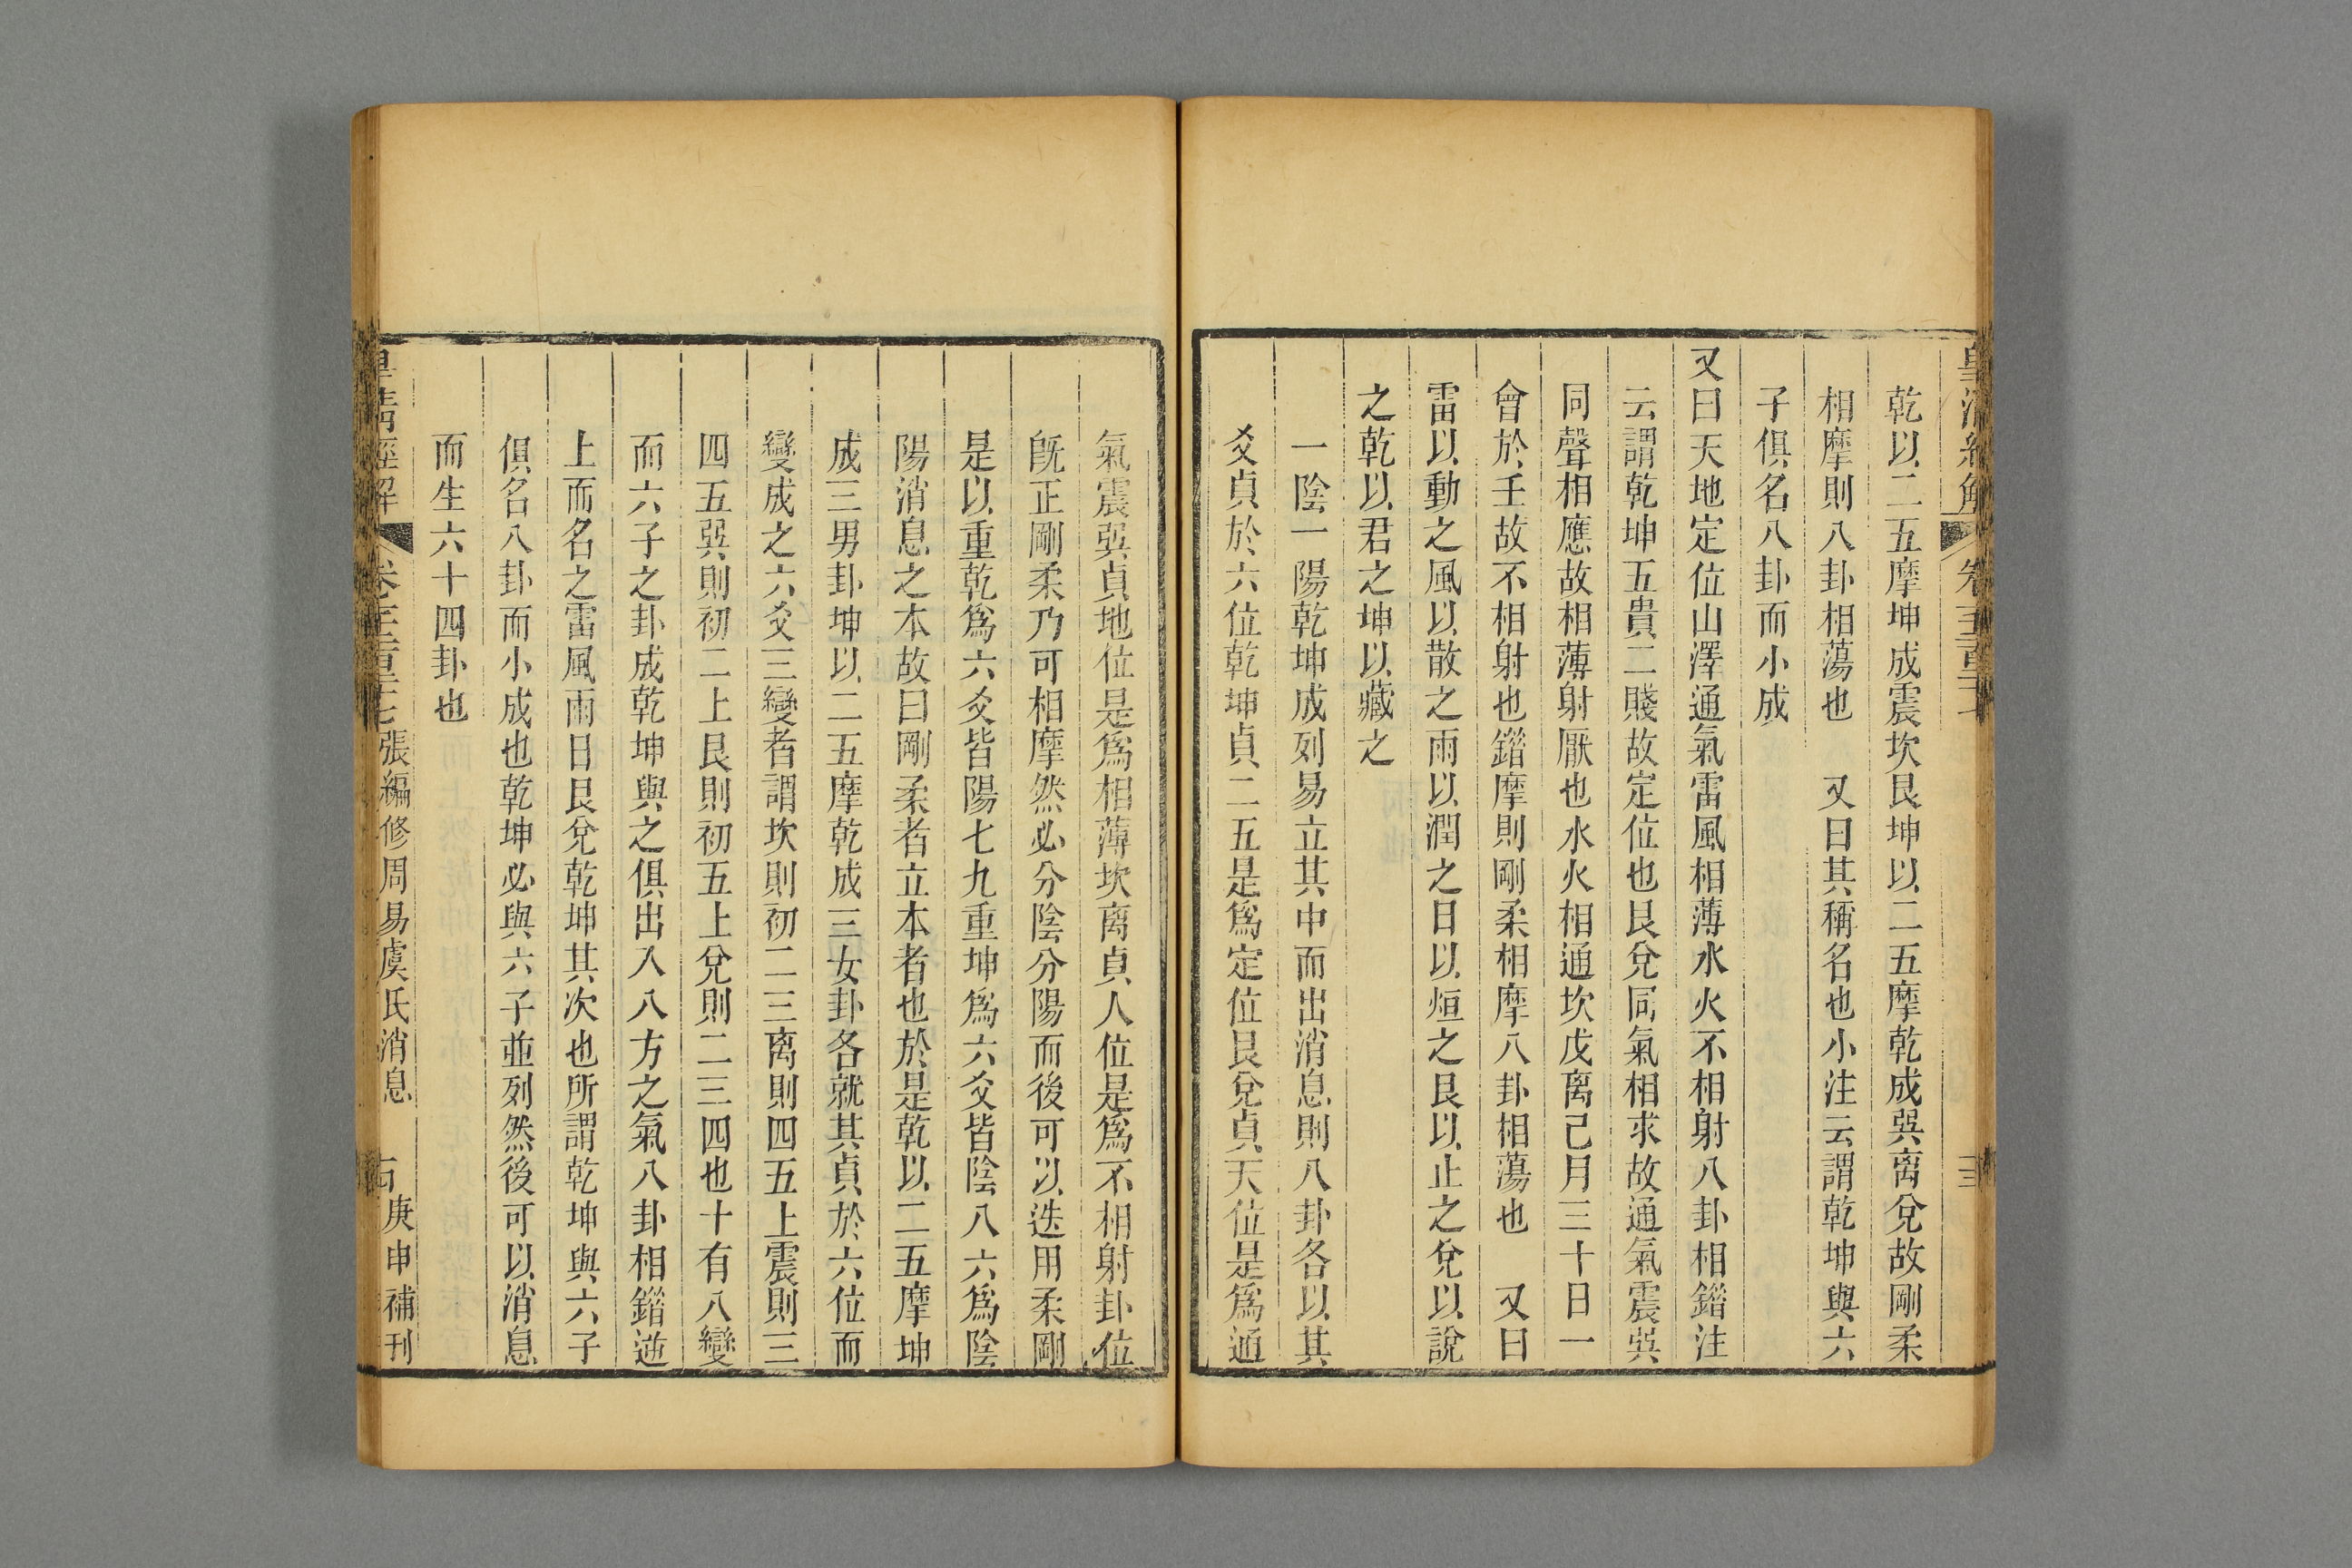 乾以二五摩坤成震坎艮坤以二五摩乾成巽离兌故剛柔
相摩則八卦相蕩也　又曰其稱名也小注云謂乾坤與六
子俱名八卦而小成
又曰天地定位山澤通氣雷風相薄水火不相射八卦相錯注
云謂乾坤五貴二賤故定位也艮兌同氣相求故通氣震巽
同聲相應故相薄射厭也水火相通坎戊离己月三十日一
會於壬故不相射也錯摩則剛柔相摩八卦相蕩也　又曰
雷以動之風以散之雨以潤之日以烜之艮以止之兌以說
之乾以君之坤以藏之
一陰一陽乾坤成列易立其中而出消息則八卦各以其
爻貞於六位乾坤貞二五是爲定位艮兌貞天位是爲通
氣震巽貞地位是爲相薄坎离貞人位是爲不相射卦位
旣正剛柔乃可相摩然必分陰分陽而後可以迭用柔剛
是以重乾爲六爻皆陽七九重坤爲六爻皆陰八六爲陰
陽消息之本故曰剛柔者立本者也於是乾以二五摩坤
成三男卦坤以二五摩乾成三女卦各就其貞於六位而
變成之六爻三變者謂坎則初二三离則四五上震則三
四五巽則初二上艮則初五上兌則二三四也十有八變
而六子之卦成乾坤與之俱出入八方之氣八卦相錯逆
上而名之雷風雨日艮兌乾坤其次也所謂乾坤與六子
俱名八卦而小成也乾坤必與六子並列然後可以消息
而生六十四卦也
皇清經解　張編修周易虞氏消息　庚申補刊